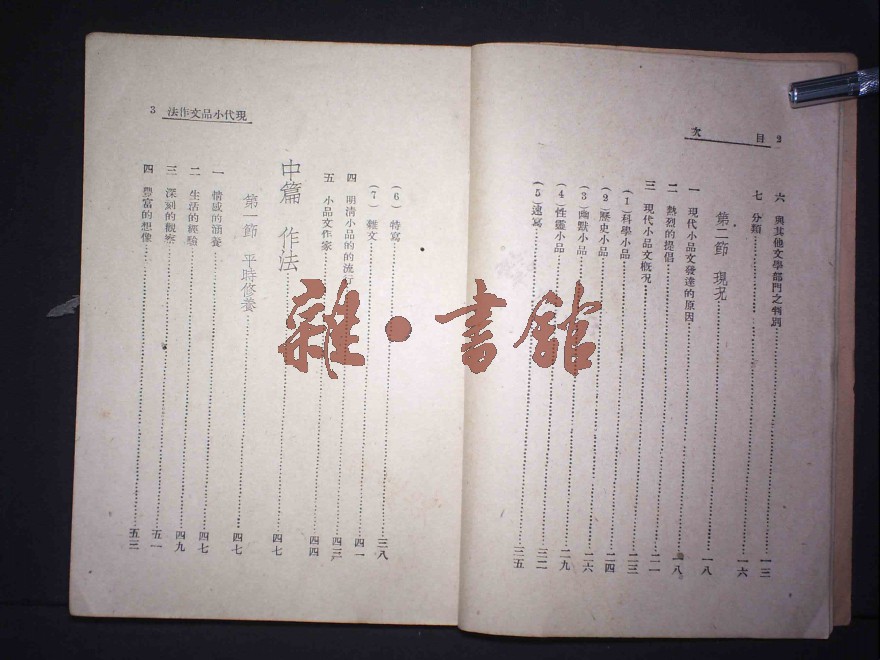 目次 2
六 與其他文學部門之判別 一三
七 分類 一六
第二節 現况 一八
一 現代小品文發達的原因 一八
二 熱烈的提倡 二一
三 現代小品文概况 二三
(1)科學小品 二四
(2)歷史小品 二六
(3)幽默小品 二九
(4)性靈小品 三二
(5)速寫 三五
現代小品文作法 3
(6)特寫 三八
(7)雜文 四一
四 明清小品的的流行 四三
五 小品文作家 四四
中篇 作法 四七
第一節 平時修養 四七
一 情感的涵養 四七
二 生活的經驗 四九
三 深刻的觀察 五一
四 豐富的想像 五三
雜·書館